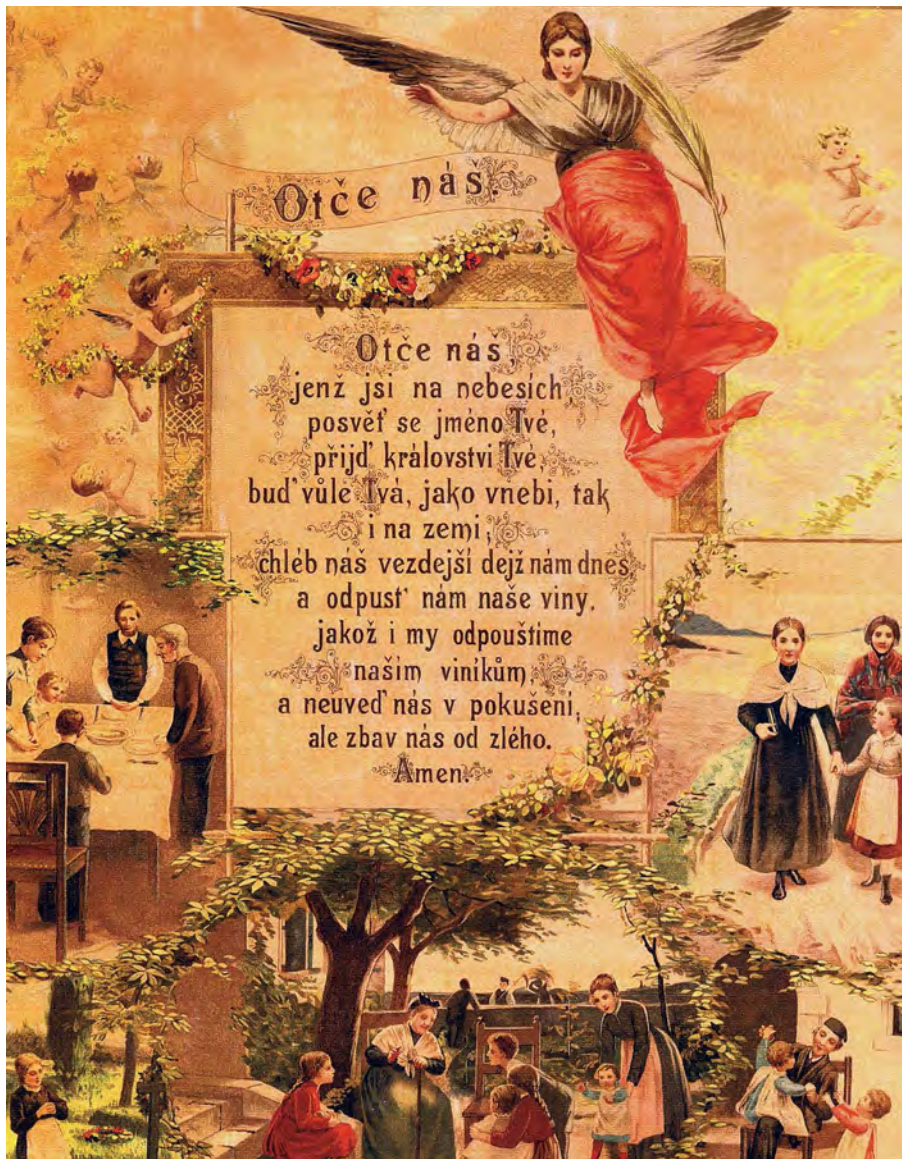 Otče náš.
Otče náš,
jenž jsi na nebesích
posvěť se jméno Tvé,
přijď královstvi Tvé,
buď vůle Tvá, jako vnebi, tak
i na zemi,
chléb náš vezdejší dejž nám dnes,
a odpusť nám naše viny,
jakož i my odpouštíme
našim viníkům,
a neuveď nás v pokušení,
ale zbav nás od zlého.
Amen.